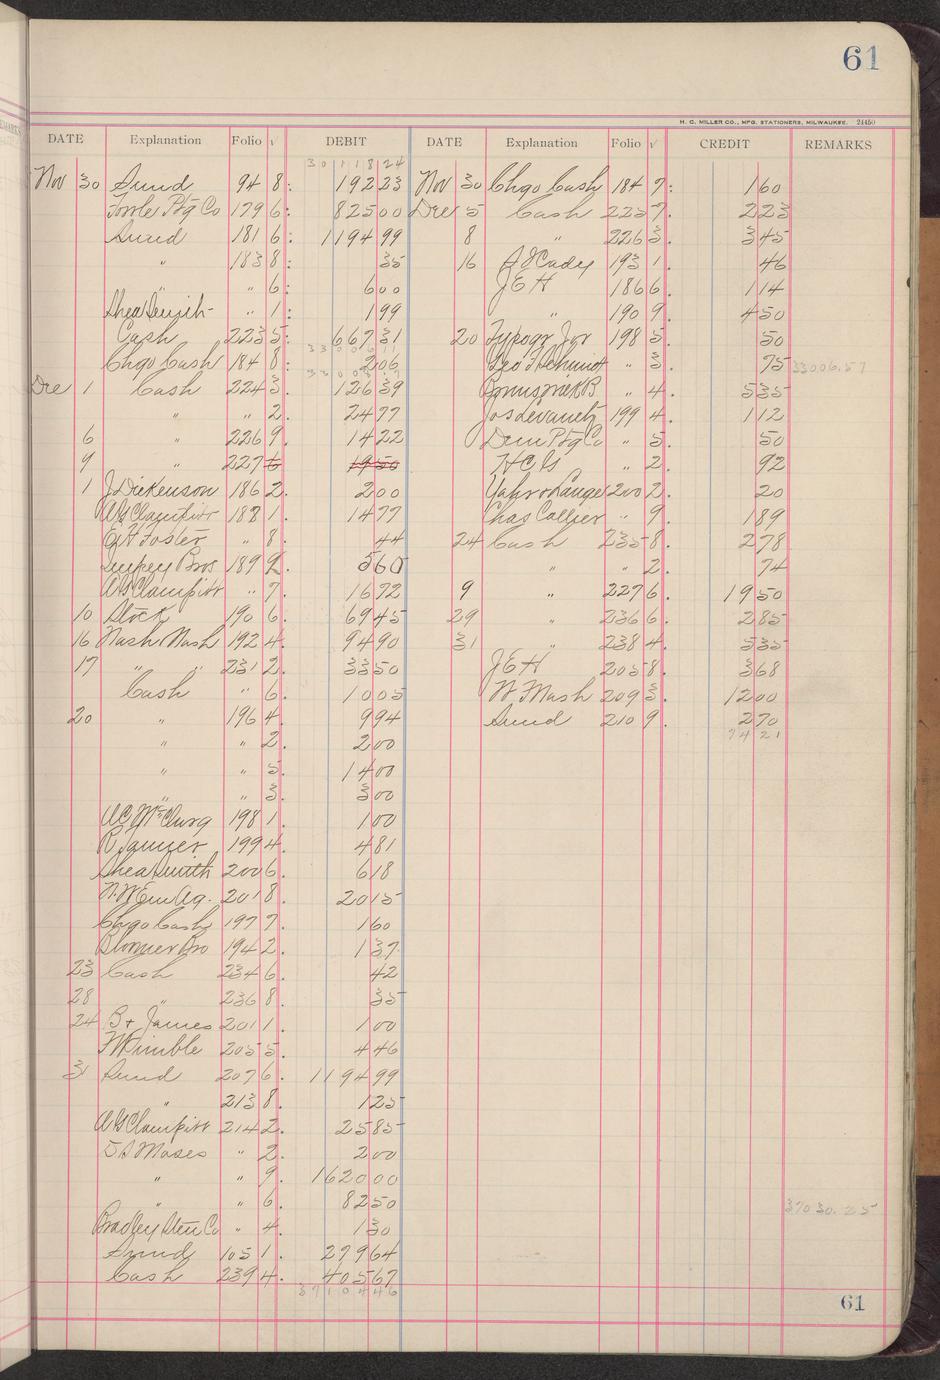 61
H. C. MILLER CO., MFG. STATIONERS, MILWAUKEE. 24450
DATE Explanation Folio √ DEBIT DATE Explanation Folio √ CREDIT REMARKS
30118 24
Nov 30 Sund 94 8: 192 23 Nov 30 Chgo Cash 184 7: 1 60
Fowle Ptg Co 179 6: 825 00 Dec 5 Cash 225 7. 2 23
Sund 181 6: 1194 99 8 " 226 3. 3 45
" 183 8: 35 16 A J Cady 193 1. 46
" " 6: 6 00 J E H 186 6 1 14
Shea Smith " 1: 1 99 " 190 9. 4 50
Cash 223 5: 667 31 20 Typogr Jor 198 5 50
Chgo Cash 184 8: 2 06 Geo F " 3. 75 33006.57
Dec 1 Cash 224 3. 126 39 Brunswick B " 4. 5 35
" " 2. 24 77 199 4. 1 12
6 " 226 9. 14 22 Dem Ptg Co " 5. 50
9 " 227 6 19 50 H C G " 2. 92
1 J Dickenson 186 2. 2 00 Yahr & Lange 200 2. 20
W G Clampitt 188 1. 14 77 Chas Collier " 9. 1 89
G H Foster " 8. 44 24 Cash 235 8. 2 78
Bros 189 2. 5 60 " " 2. 74
W G Clampitt " 7. 16 72 9 " 227 6 19 50
10 Stock 190 6. 69 45 29 " 236 6. 2 85
16 Nash Nash 192 4. 94 90 31 " 238 4. 5 35
17 " " 231 2. 33 50 J E H 205 8. 3 68
Cash " 6. 10 05 W F Mash 209 3. 12 00
20 " 196 4. 9 94 Sund 210 9. 2 70
" " 2. 2 00 74 21
" " 5. 14 00
" " 3. 3 00
A C McClurg 198 1. 1 00
R 199 4. 4 81
Shea Smith 200 6. 6 18
N. W. Em Ag. 201 8. 20 15
Chgo Cash 197 7. 1 60
Blomer Bro 194 2. 1 37
23 Cash 234 6. 42
28 " 236 8. 35
24 B & James 201 1. 1 00
F W Kimble 205 5. 4 46
31 Sund 207 6. 1194 99
" 213 8. 1 25
W G Clampitt 214 2. 25 85
T S Moses " 2. 2 00
" " 9. 1620 00
" " 6. 82 50 37030.25
Bradley Sten Co " 4. 1 30
Sund 105 1. 279 64
Cash 239 4. 405 67
37104 46
61